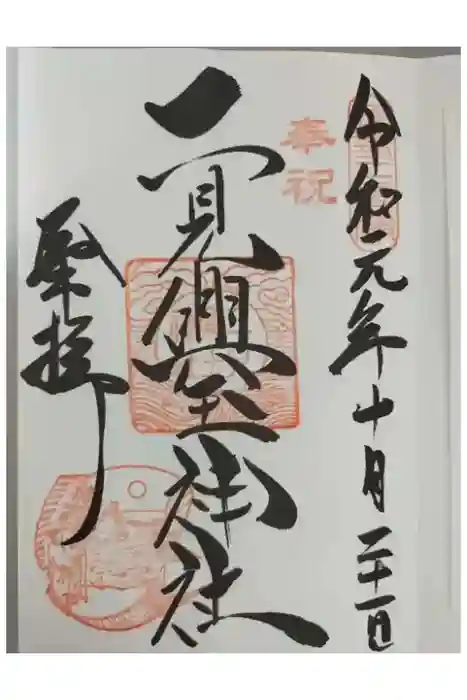 令和元年十月二十一日
奉祝
二見興玉神社
参拝